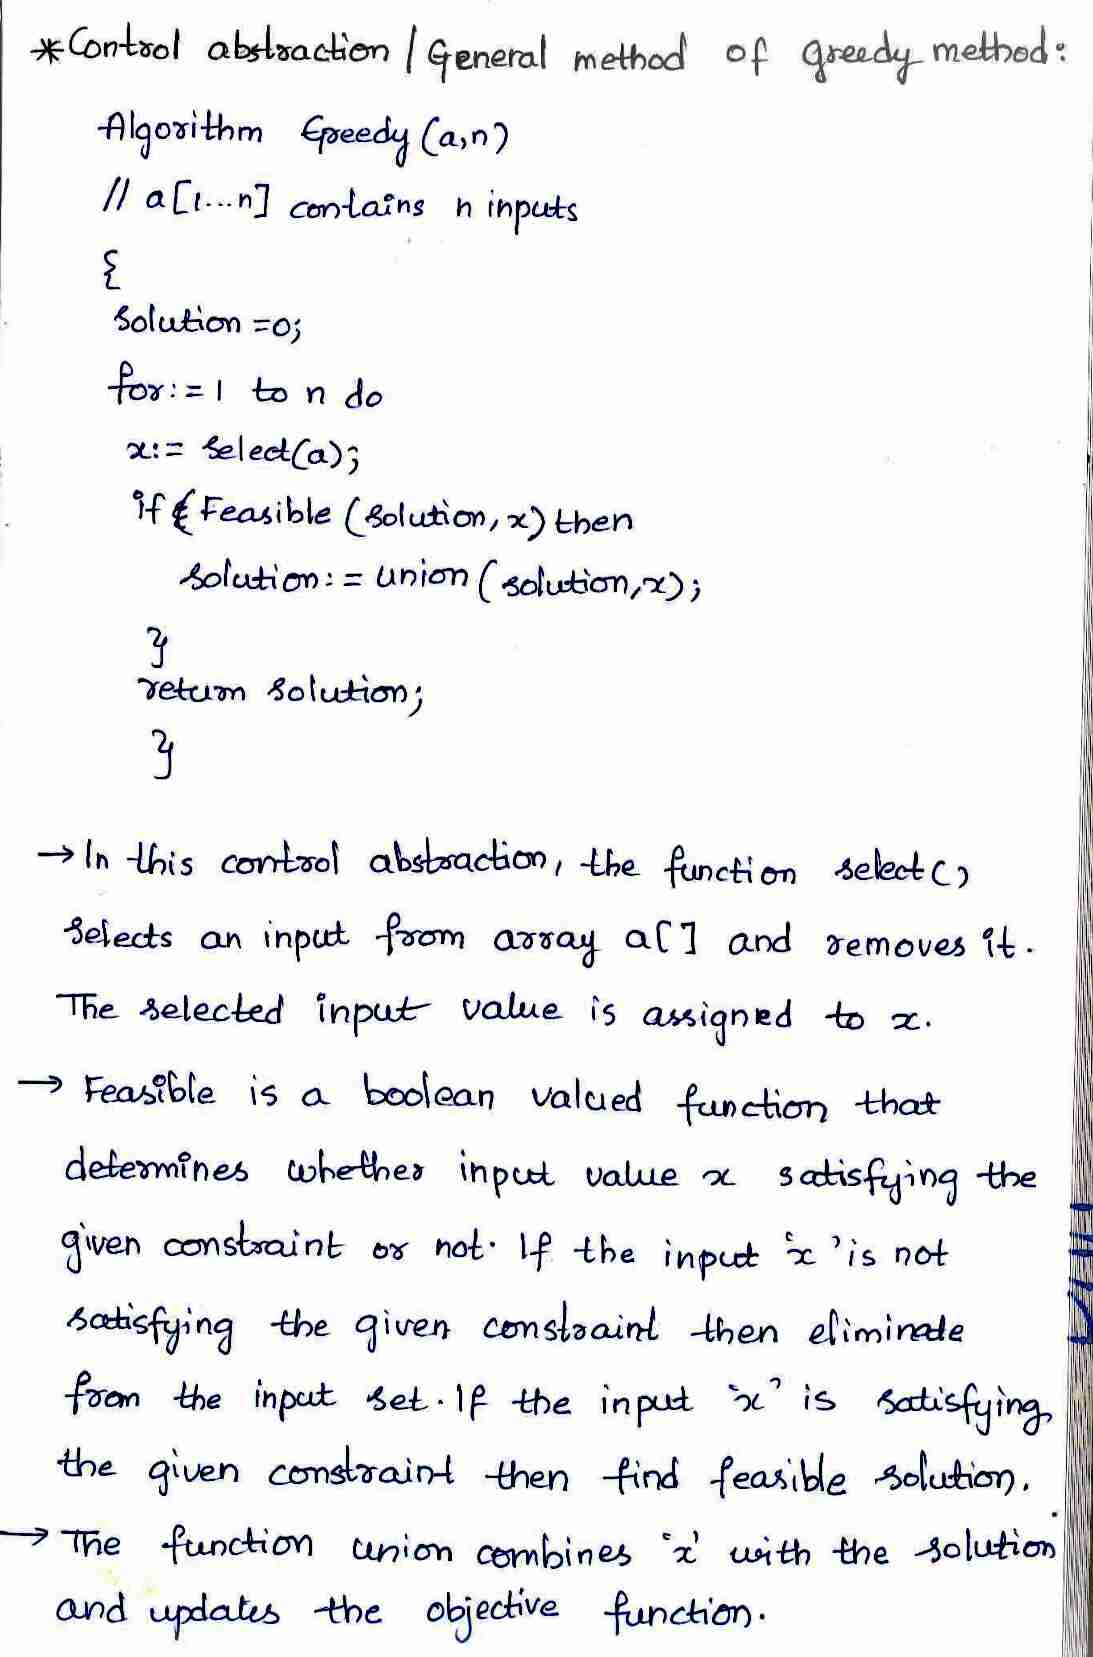 *Control abstraction / General method of greedy method:
Algorithm Greedy (a,n)
// a[1...n] contains n inputs
{
Solution =0;
for:=1 to n do
x:= Select(a);
if Feasible (solution, x) then
solution:= union (solution,x);
}
return solution;
}
→ In this control abstraction, the function select()
Selects an input from array a[] and removes it.
The selected input value is assigned to x.
→ Feasible is a boolean valued function that
determines whether input value x satisfying the
given constraint or not. If the input 'x' is not
satisfying the given constraint then eliminate
from the input set. If the input 'x' is satisfying
the given constraint then find feasible solution.
→ The function union combines 'x' with the solution
and updates the objective function.